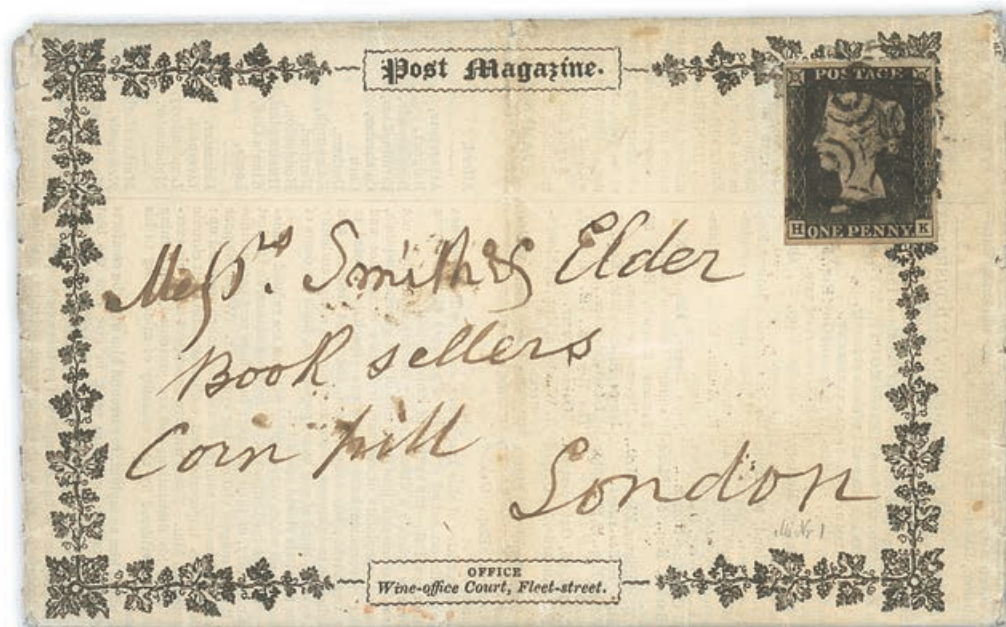 Post Magazine.
POSTAGE
H ONE PENNY K
Messrs. Smith & Elder
Book sellers
Corn hill
London
OFFICE
Wine-office Court, Fleet-street.